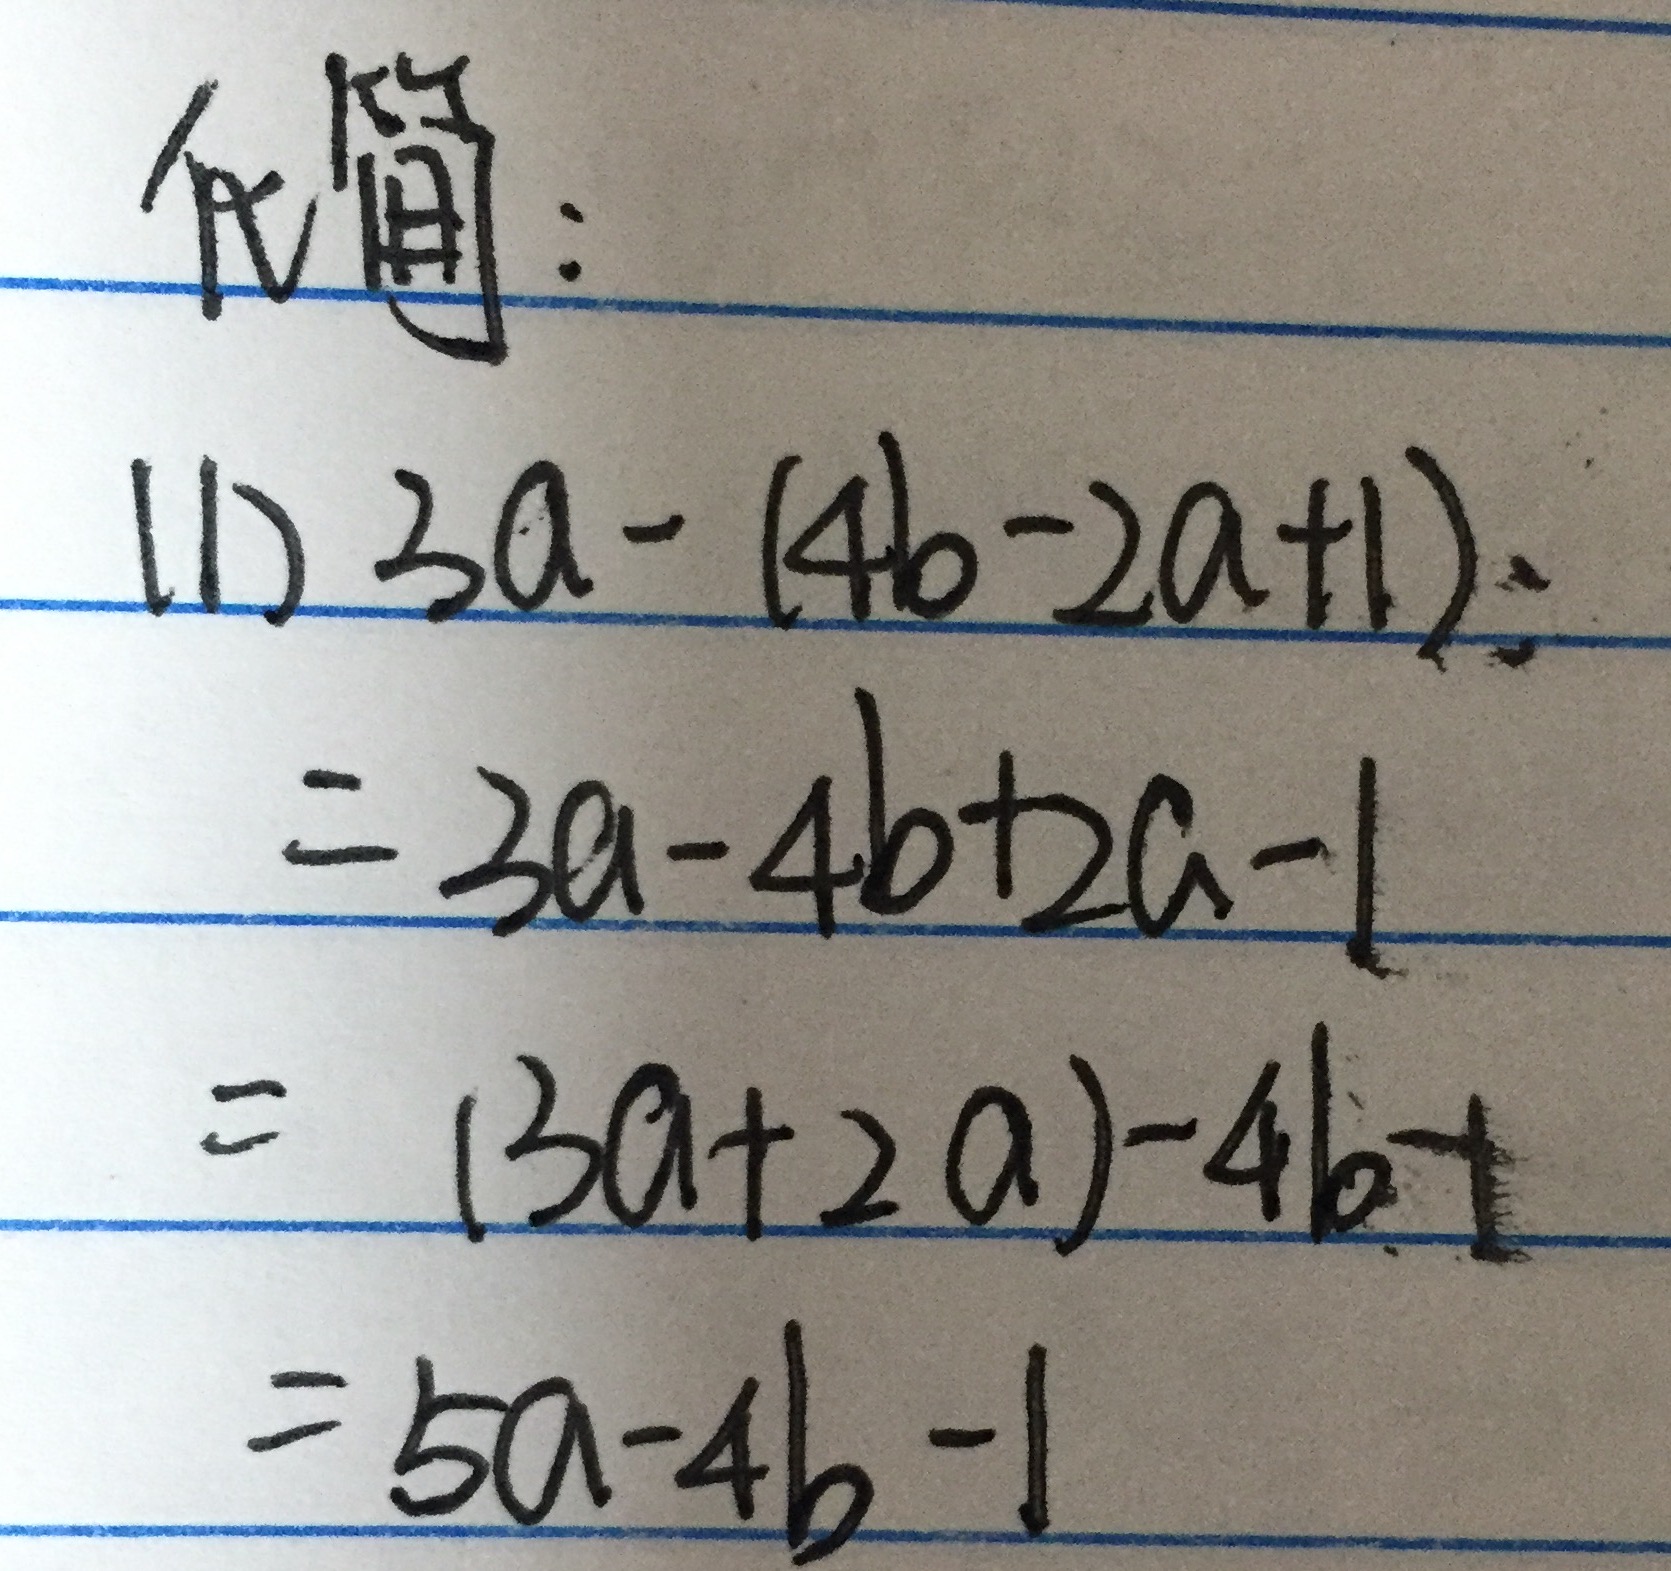 化簡:
(1) 3a-(4b-2a+1):
=3a-4b+2a-1
= (3a+2a)-4b-1
=5a-4b-1